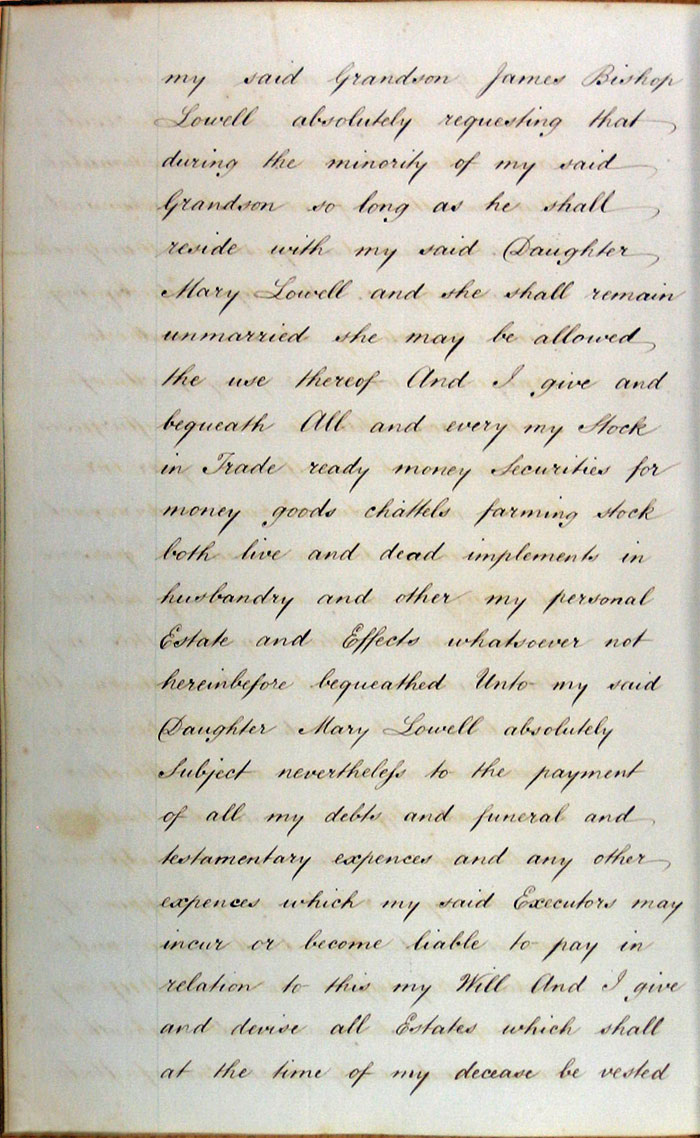 my said Grandson James Bishop
Lowell absolutely requesting that
during the minority of my said
Grandson so long as he shall
reside with my said Daughter
Mary Lowell and she shall remain
unmarried she may be allowed
the use thereof And I give and
bequeath All and every my Stock
in Trade ready money Securities for
money goods chattels farming stock
both live and dead implements in
husbandry and other my personal
Estate and Effects whatsoever not
hereinbefore bequeathed Unto my said
Daughter Mary Lowell absolutely
Subject nevertheleſs to the payment
of all my debts and funeral and
testamentary expences and any other
expences which my said Executors may
incur or become liable to pay in
relation to this my Will And I give
and devise all Estates which shall
at the time of my decease be vested